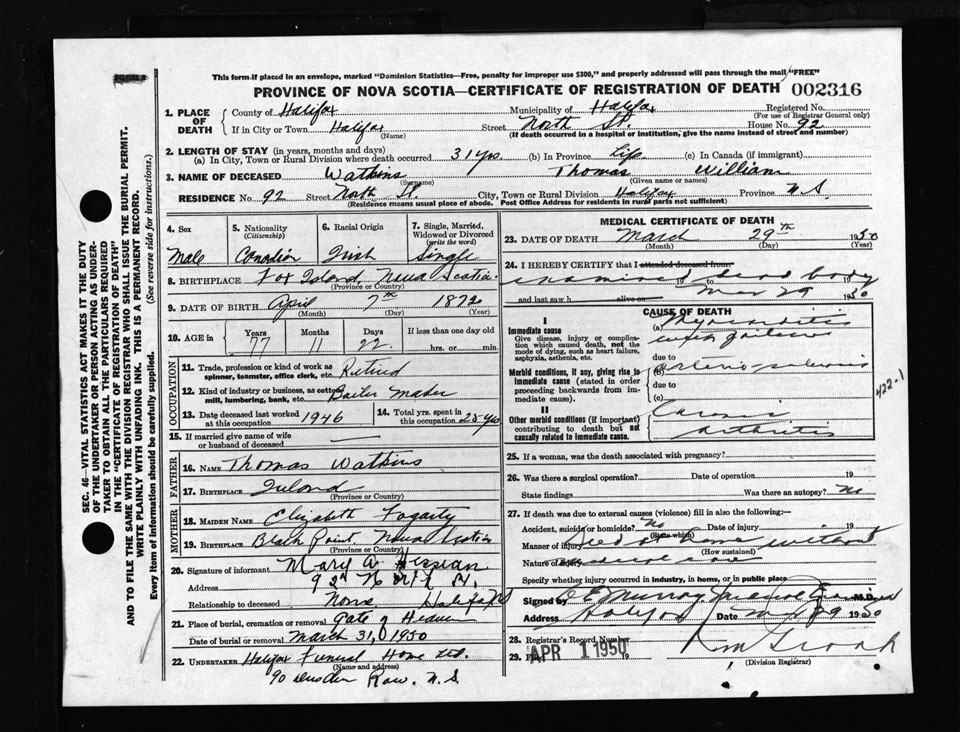 FORM 6
This form if placed in an envelope, marked "Dominion Statistics—Free, penalty for improper use $300," and properly addressed will pass through the mail "FREE"
PROVINCE OF NOVA SCOTIA—CERTIFICATE OF REGISTRATION OF DEATH 002316
1. PLACE OF DEATH
County of Halifax Municipality of Halifax Registered No.
(For use of Registrar General only)
If in City or Town Halifax (Name) Street North St. House No. 92
(If death occurred in a hospital or institution, give the name instead of street and number)
2. LENGTH OF STAY (in years, months and days)
(a) In City, Town or Rural Division where death occurred 31 yrs. (b) In Province Life (c) In Canada (if immigrant)
3. NAME OF DECEASED Watkins Thomas William
(Surname) (Given name or names)
RESIDENCE No 92 Street North St. City, Town or Rural Division Halifax Province N.S.
(Residence means usual place of abode. Post Office Address for residents in rural parts not sufficient)
4. Sex Male
5. Nationality (Citizenship) Canadian
6. Racial Origin Irish
7. Single, Married, Widowed or Divorced (write the word) Single
8. BIRTHPLACE Fox Island, Nova Scotia
(Province or Country)
9. DATE OF BIRTH April 7th 1872
(Month) (Day) (Year)
10. AGE in Years 77 Months 11 Days 22 If less than one day old hrs. or min.
OCCUPATION
11. Trade, profession or kind of work as spinner, teamster, office clerk, etc. Retired
12. Kind of industry or business, as cotton mill, lumbering, bank, etc. Boiler Maker
13. Date deceased last worked at this occupation 1946
14. Total yrs. spent in this occupation 25 yrs
15. If married give name of wife or husband of deceased —
FATHER
16. NAME Thomas Watkins
17. BIRTHPLACE Ireland
(Province or Country)
MOTHER
18. MAIDEN NAME Elizabeth Fogarty
19. BIRTHPLACE Black Point, Nova Scotia
(Province or Country)
20. Signature of informant Mary A. Hessian
Address 92 North St.
Relationship to deceased None Halifax NS
21. Place of burial, cremation or removal Gate of Heaven
Date of burial or removal March 31, 1950
22. UNDERTAKER Halifax Funeral Home Ltd.
(Name and address)
90 Row. N.S.
MEDICAL CERTIFICATE OF DEATH
23. DATE OF DEATH March 29th 1950
(Month) (Day) (Year)
24. I HEREBY CERTIFY that I attended deceased from
examined dead body
19 to
and last saw h alive on Mar 29 1950
CAUSE OF DEATH
I
Immediate cause
Give disease, injury or complication which caused death, not the mode of dying, such as heart failure, asphyxia, asthenia, etc.
(a) Myocarditis
with failure
due to
Morbid conditions, if any, giving rise to immediate cause (stated in order proceeding backwards from immediate cause).
(b) Arterio sclerosis
due to
(c)
422-1
II
Other morbid conditions (if important) contributing to death but not causally related to immediate cause.
Chronic
arthritis
25. If a woman, was the death associated with pregnancy?
26. Was there a surgical operation? Date of operation 19
State findings Was there an autopsy? No
27. If death was due to external causes (violence) fill in also the following:—
Accident, suicide or homicide? No Date of injury 19
(State which)
Manner of injury Died at home without
(How sustained)
Nature of injury medical care
Specify whether injury occurred in industry, in home, or in public place
Signed by Murray M.D.
Address Halifax Date Mar 29 1950
28. Registrar's Record Number
29. Filed APR 1 1950 19
(Division Registrar)
SEC. 46—VITAL STATISTICS ACT MAKES IT THE DUTY
OF THE UNDERTAKER OR PERSON ACTING AS UNDER-
TAKER TO OBTAIN ALL THE PARTICULARS REQUIRED
IN THE "CERTIFICATE OF REGISTRATION OF DEATH"
AND TO FILE THE SAME WITH THE DIVISION REGISTRAR WHO SHALL ISSUE THE BURIAL PERMIT.
WRITE PLAINLY WITH UNFADING INK. THIS IS A PERMANENT RECORD.
Every item of information should be carefully supplied. (See reverse side for instructions.)